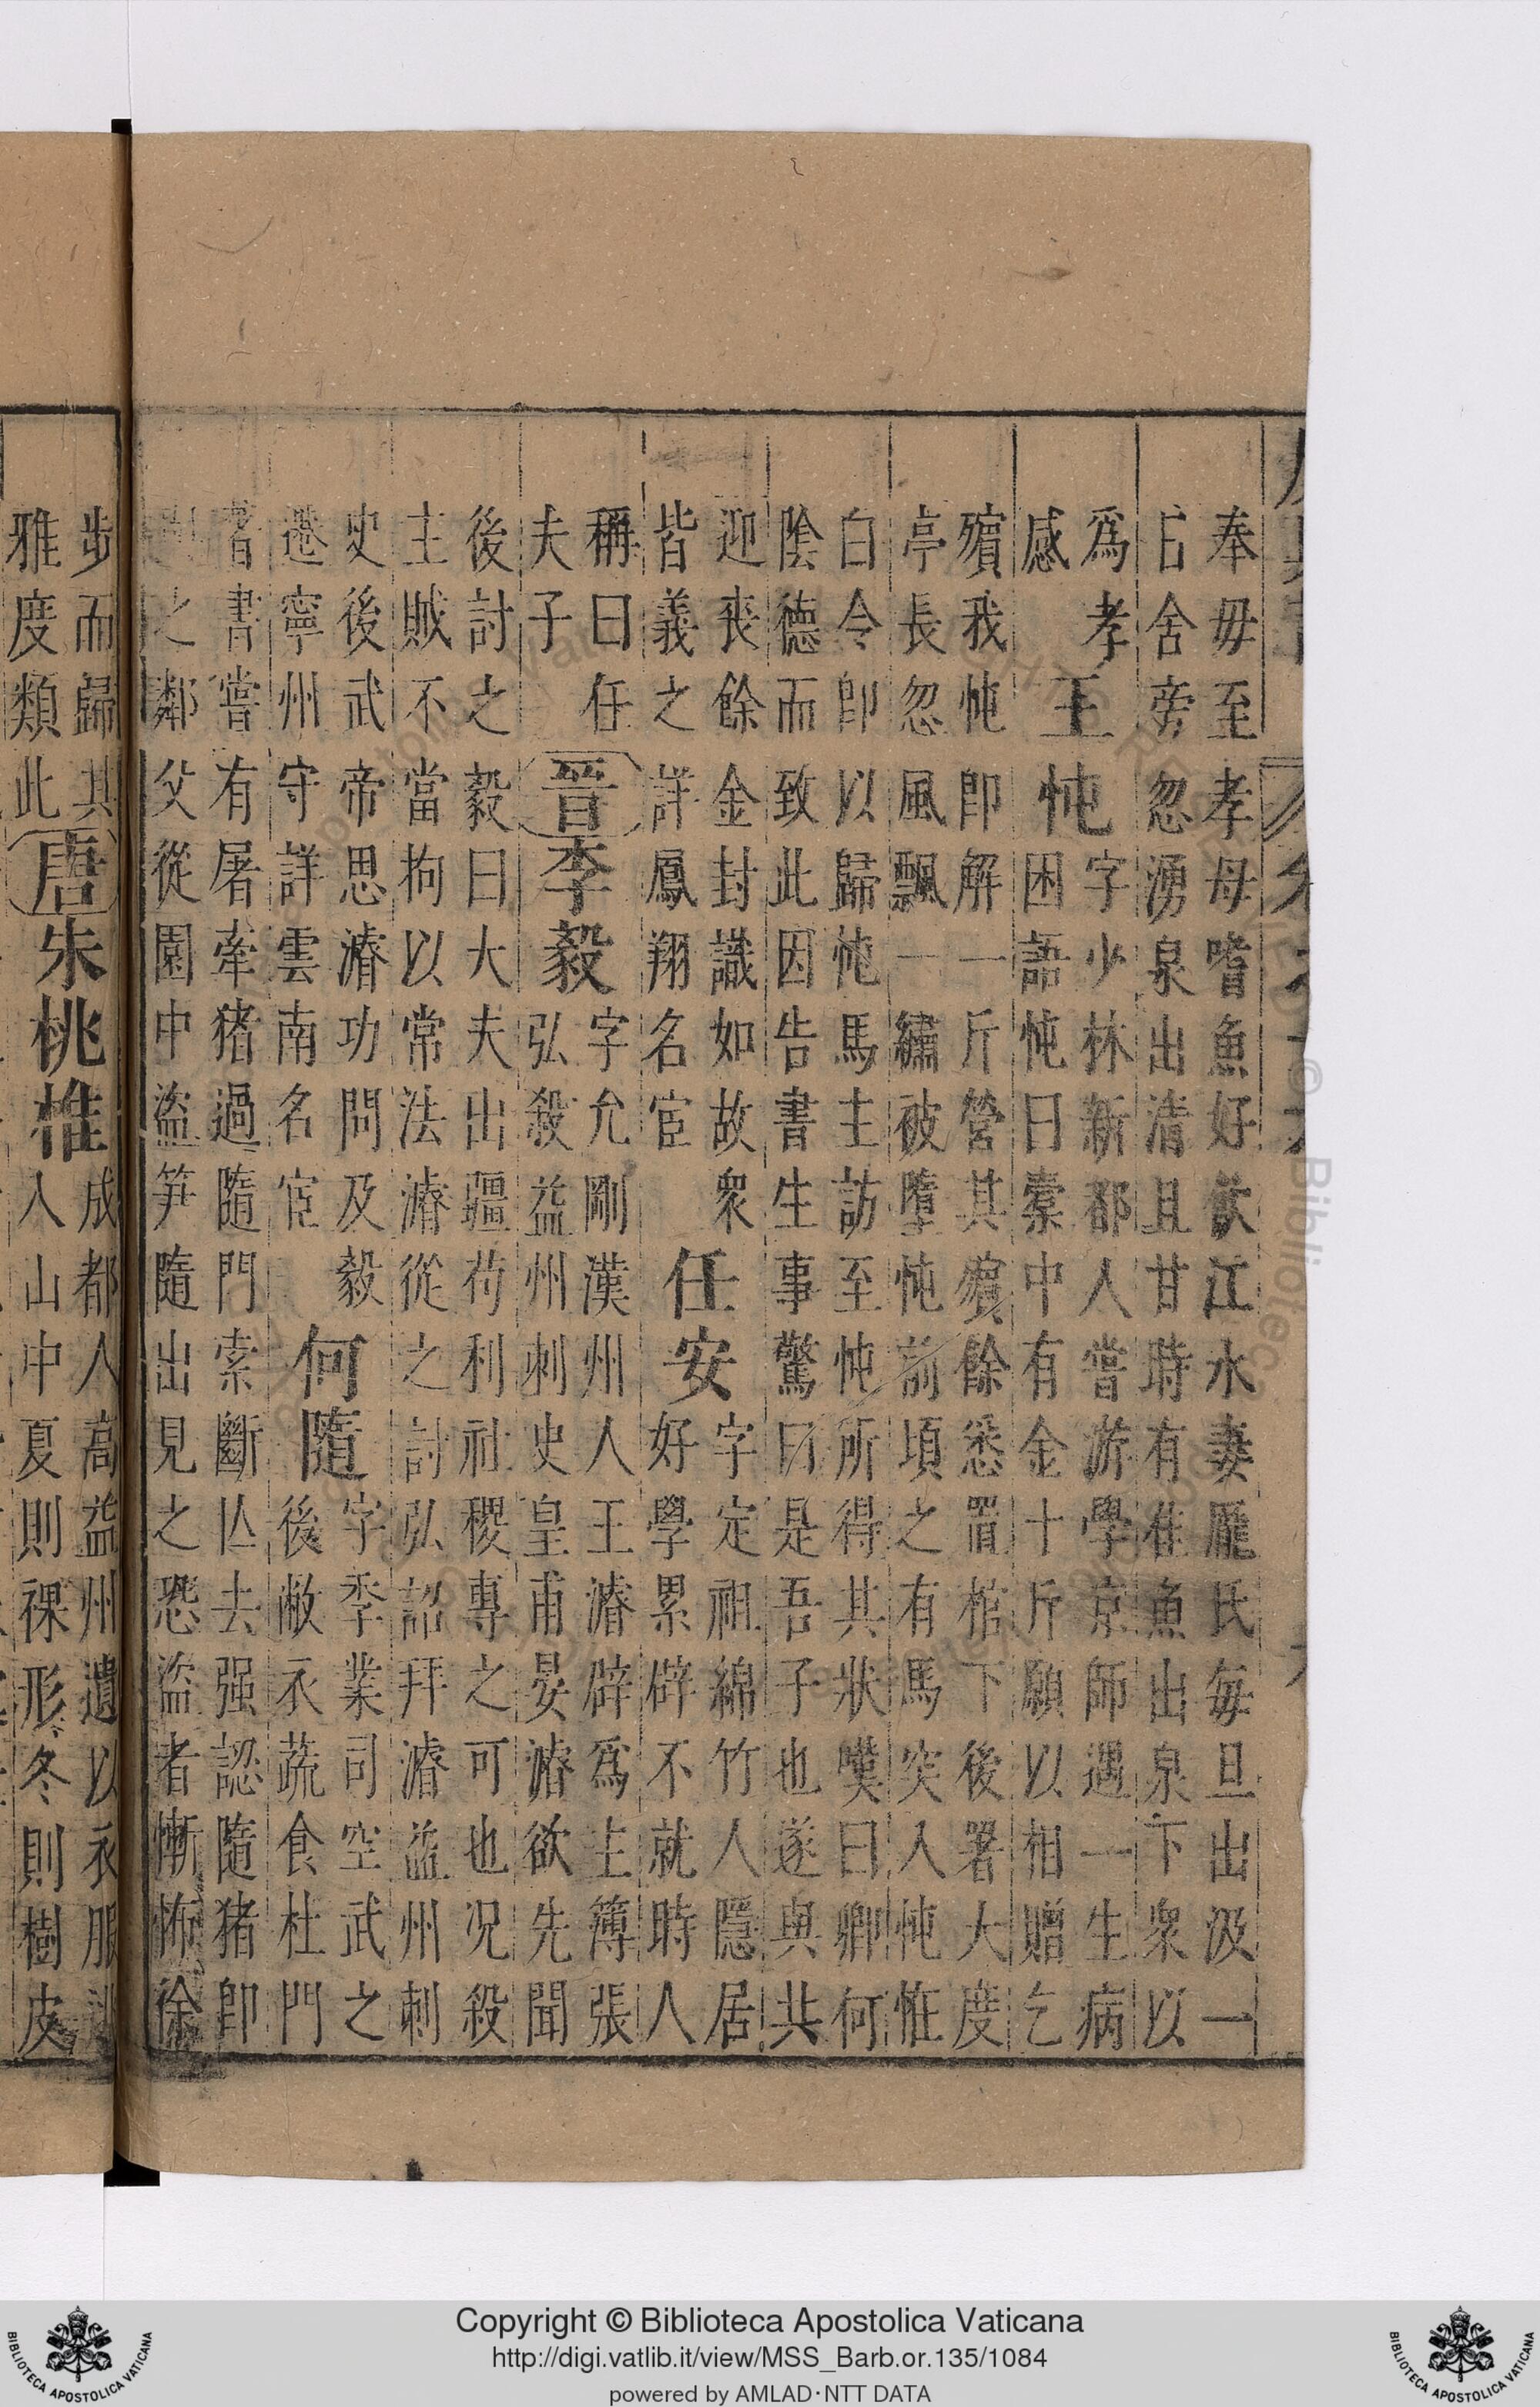 奉毋至孝母嗜魚好飲江水妻龐氏每旦出汲一
日舍旁忽湧泉出清且甘時有隹魚出泉下衆以
爲孝
感
王忳
字少林新都人嘗游學京師遇一生病
困語忳曰橐中有金十斤願以相贈乞
殯我忳即解一斤營其殯餘悉置棺下後署大度
亭長忽風飄一繡被墮忳前頃之有馬突入忳恠
白令即以歸忳馬主訪至忳所得其狀嘆曰卿何
陰德而致此因告書生事驚曰是吾子也遂與共
迎喪餘金封識如故衆
皆義之詳鳳翔名宦
任安
字定祖綿竹人隱居
好學累辟不就時人
稱曰任
夫子
晉
李毅
字允剛漢州人王濬辟爲主簿張
弘殺益州刺史皇甫晏濬欲先聞
後討之毅曰大夫出疆苟利社稷專之可也况殺
主賊不當拘以常法濬從之討弘詔拜濬益州刺
史後武帝思濬功問及毅
遷寧州守詳雲南名宦
何隨
字季業司空武之
後敝衣蔬食杜門
著書嘗有屠牽猪過隨門索斷亾去强認隨猪即
之鄰父從園中盜笋隨出見之恐盜者慚怖徐
步而歸其
雅度類此
唐
朱桃椎
成都人高益州遺以衣服
入山中夏則裸形冬則樹皮
Copyright © Biblioteca Apostolica Vaticana
http://digi.vatlib.it/view/MSS_Barb.or.135/1084
powered by AMLAD·NTT DATA
BIBLIOTECA APOSTOLICA VATICANA
BIBLIOTECA APOSTOLICA VATICANA